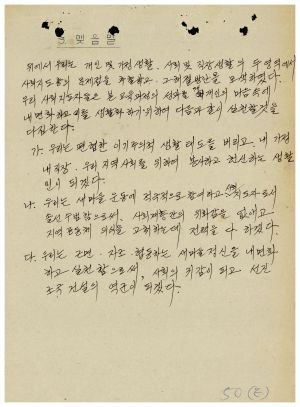 3. 맺음말
위에서 우리는 개인 및 가정생활, 사회 및 직장생활의 두 영역에서
사회지도층의 문제점을 추출하고 그 해결방안을 모색하였다.
우리 사회지도자들은 본 교육과정의 성과를 개인의 마음속에
내면화하고 이를 생활화하기 위하여 다음과 같이 실천할것을
다짐한다.
가. 우리는 편협한 이기주의적 생활태도를 버리고, 내 가정
내 직장, 우리 지역사회를 위하여 봉사하고 헌신하는 생활
인이 되겠다.
나. 우리는 새마을 운동에 적극적으로 참여하고 지도자로서
솔선수범함으로써, 사회계층간의 위화감을 없애고
지역 의 를 고취하는데 전력을 다 하겠다.
다. 우리는 근면·자조·협동하는 새마을정신을 내면화
하고 실천함으로써, 사회의 귀감이 되고 선진
조국 건설의 역군이 되겠다.
50(E)